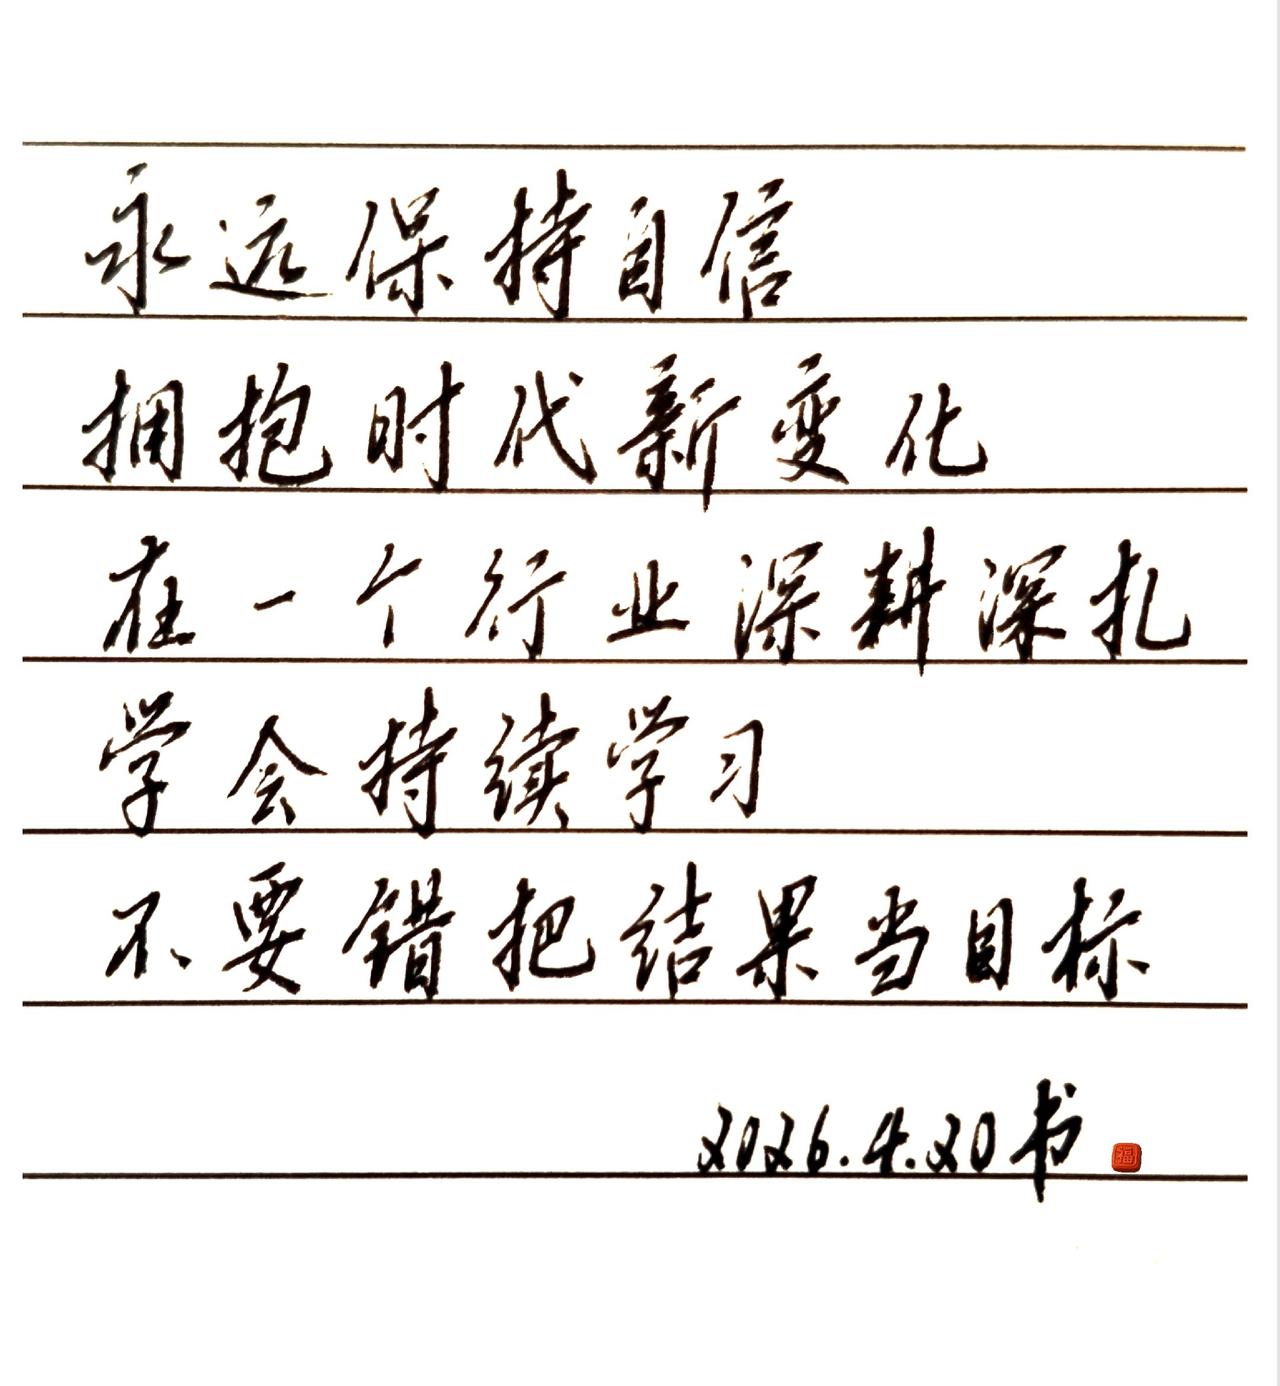 永远保持自信
拥抱时代新变化
在一个行业深耕深扎
学会持续学习
不要错把结果当目标
2026.4.20书
福